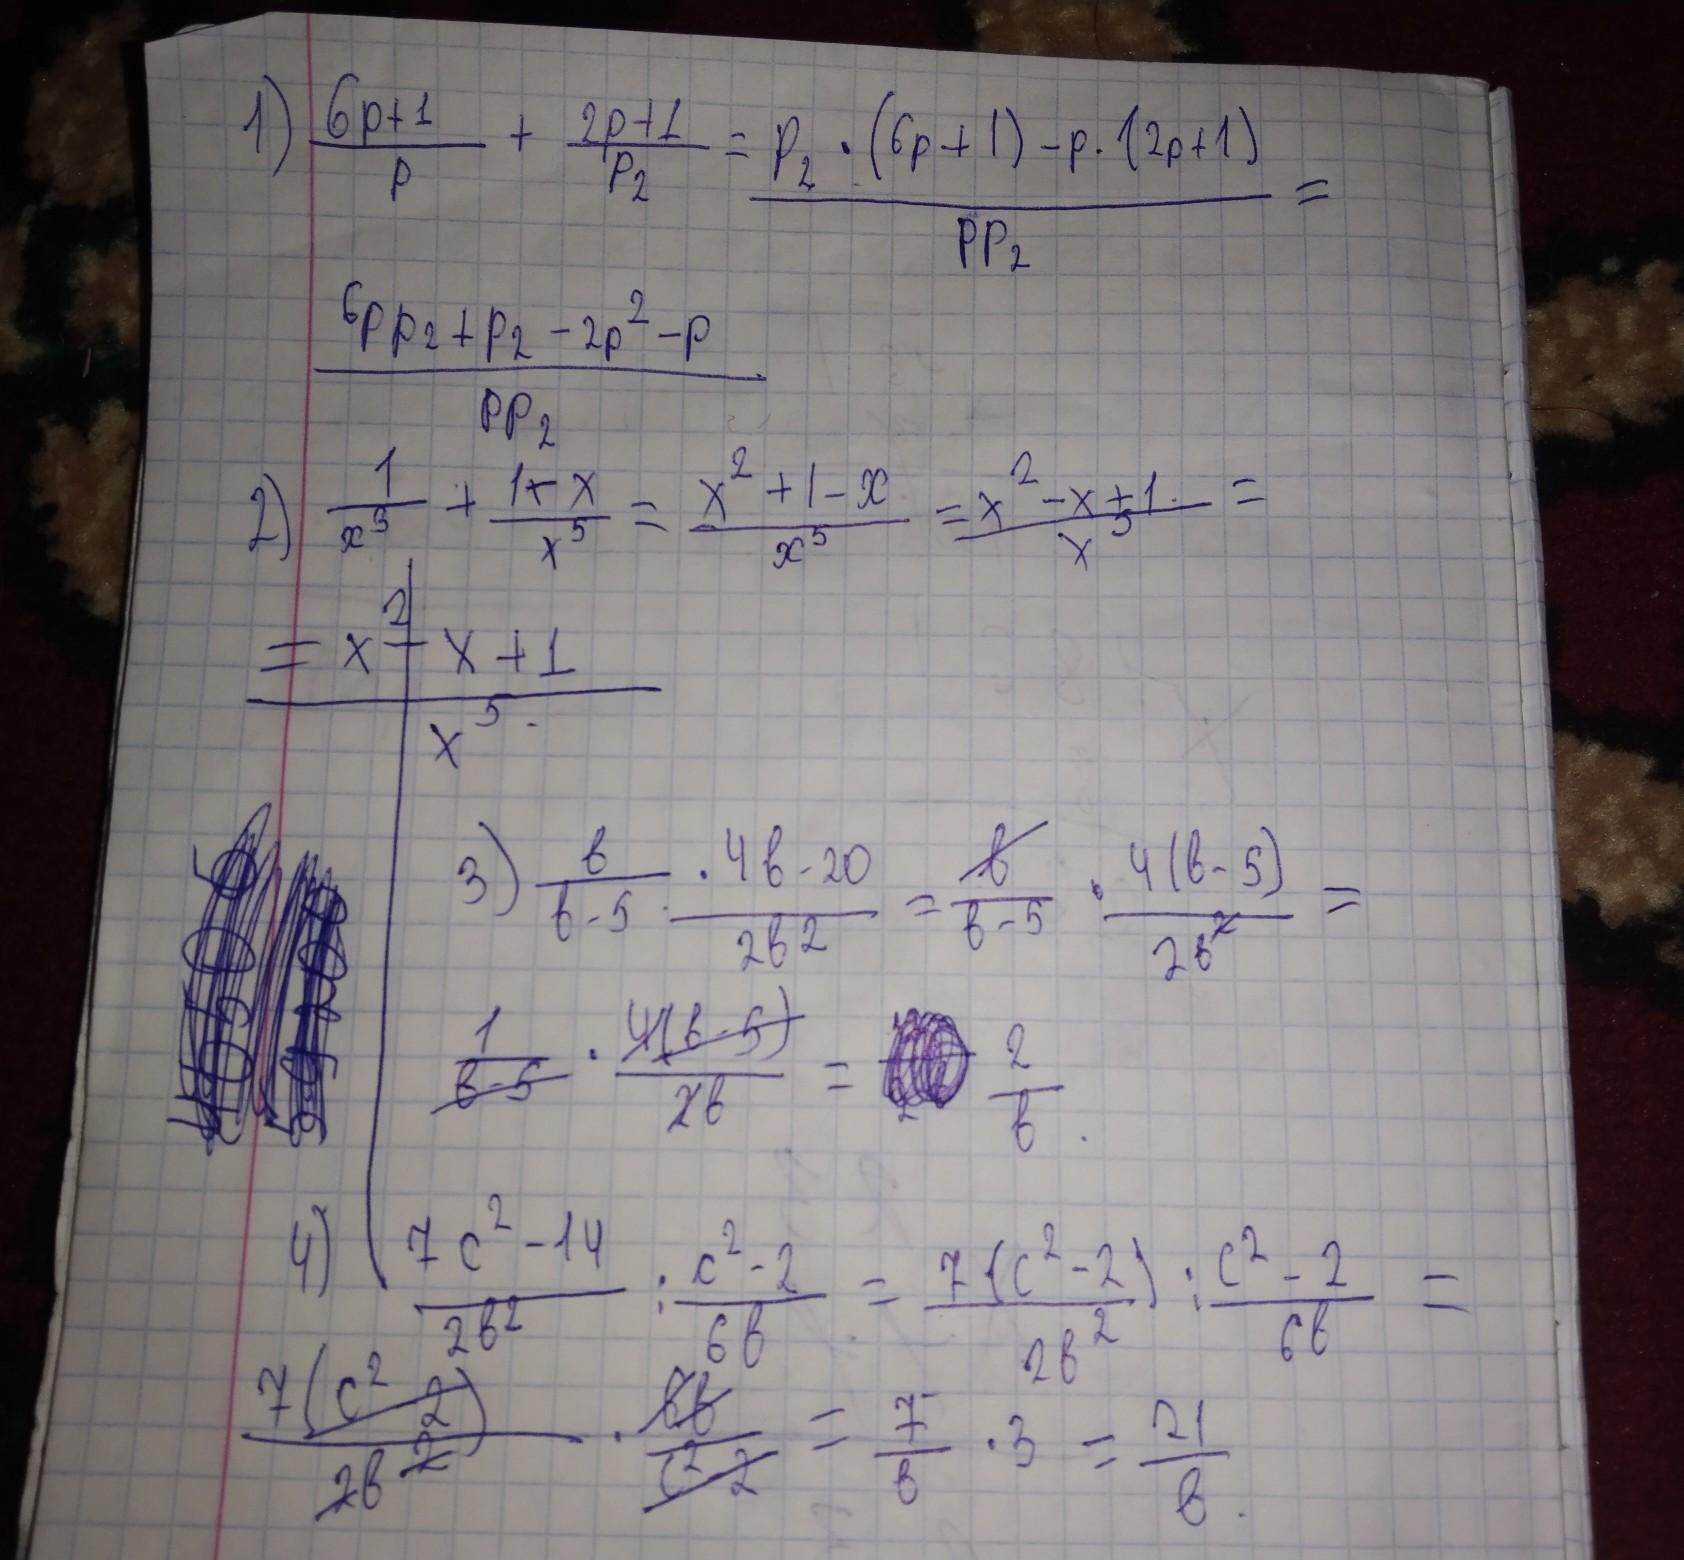 1) \frac{6p+1}{p} + \frac{2p+1}{p_2} = \frac{p_2 \cdot (6p+1) - p \cdot (2p+1)}{pp_2} =
\frac{6pp_2 + p_2 - 2p^2 - p}{pp_2}
2) \frac{1}{x^3} + \frac{1+x}{x^5} = \frac{x^2+1-x}{x^5} = \frac{x^2-x+1}{x^5} =
= \frac{x^2-x+1}{x^5}.
3) \frac{b}{b-5} \cdot \frac{4b-20}{2b^2} = \frac{b}{b-5} \cdot \frac{4(b-5)}{2b^2} =
\frac{1}{b-5} \cdot \frac{4(b-5)}{2b} = \frac{2}{b}.
4) \frac{7c^2-14}{2b^2} : \frac{c^2-2}{6b} = \frac{7(c^2-2)}{2b^2} : \frac{c^2-2}{6b} =
\frac{7(c^2-2)}{2b^2} \cdot \frac{6b}{c^2-2} = \frac{7}{b} \cdot 3 = \frac{21}{b}.